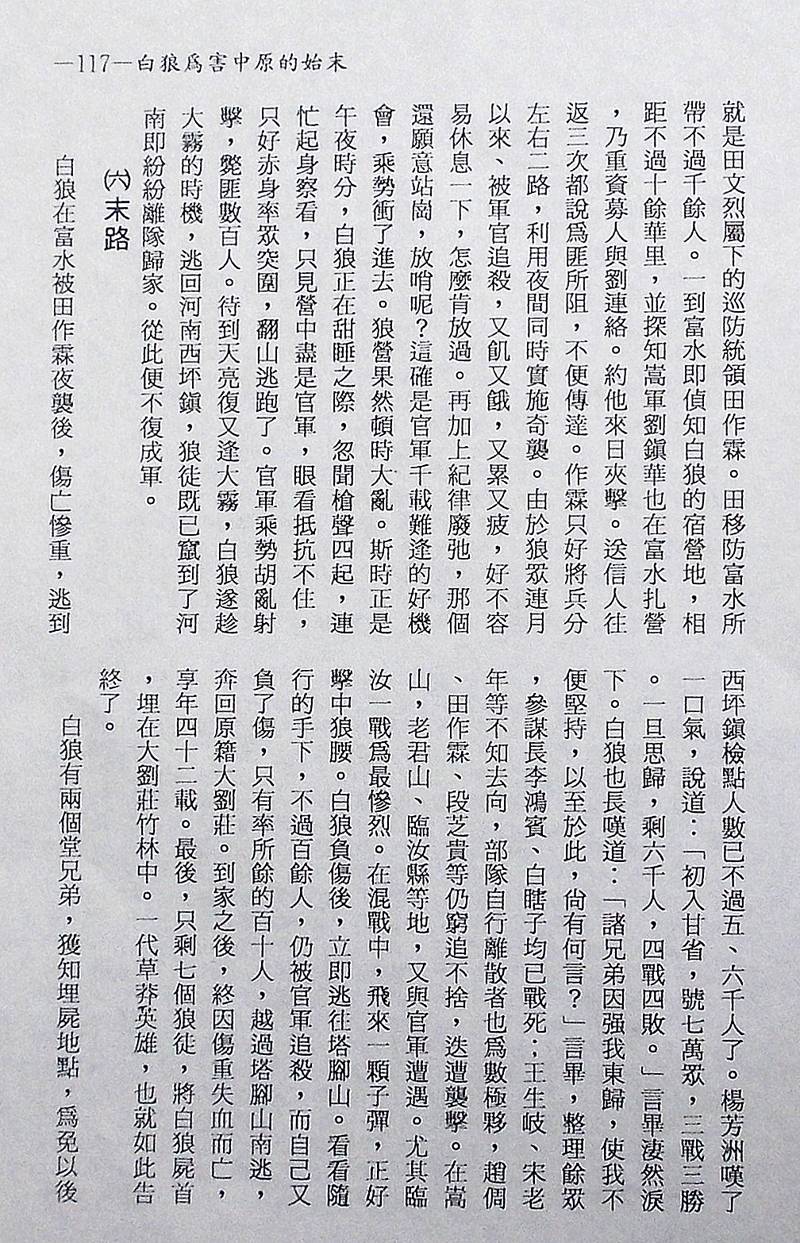 —117—白狼為害中原的始末
就是田文烈屬下的巡防統領田作霖。田移防富水所
帶不過千餘人。一到富水即偵知白狼的宿營地，相
距不過十餘華里，並探知嵩軍劉鎭華也在富水扎營
，乃重資募人與劉連絡。約他來日夾擊。送信人往
返三次都說爲匪所阻，不便傳達。作霖只好將兵分
左右二路，利用夜間同時實施奇襲。由於狼眾連月
以來、被軍官追殺，又飢又餓，又累又疲，好不容
易休息一下，怎麼肯放過。再加上紀律廢弛，那個
還願意站崗，放哨呢？這確是官軍千載難逢的好機
會，乘勢衝了進去。狼營果然頓時大亂。斯時正是
午夜時分，白狼正在甜睡之際，忽聞槍聲四起，連
忙起身察看，只見營中盡是官軍，眼看抵抗不住，
只好赤身率眾突圍，翻山逃跑了。官軍乘勢胡亂射
擊，斃匪數百人。待到天亮復又逢大霧，白狼遂趁
大霧的時機，逃回河南西坪鎭，狼徒既已竄到了河
南即紛紛離隊歸家。從此便不復成軍。
㈥末路
白狼在富水被田作霖夜襲後，傷亡慘重，逃到
西坪鎭檢點人數已不過五、六千人了。楊芳洲嘆了
一口氣，說道：「初入甘省，號七萬眾，三戰三勝
。一旦思歸，剩六千人，四戰四敗。」言畢淒然淚
下。白狼也長嘆道：「諸兄弟因强我東歸，使我不
便堅持，以至於此，尙有何言？」言畢，整理餘眾
，參謀長李鴻賓、白瞎子均已戰死；王生岐、宋老
年等不知去向，部隊自行離散者也爲數極夥，趙倜
、田作霖、段芝貴等仍窮追不捨，迭遭襲擊。在嵩
山，老君山、臨汝縣等地，又與官軍遭遇。尤其臨
汝一戰爲最慘烈。在混戰中，飛來一顆子彈，正好
擊中狼腰。白狼負傷後，立即逃往塔腳山。看看隨
行的手下，不過百餘人，仍被官軍追殺，而自己又
負了傷，只有率所餘的百十人，越過塔腳山南逃，
奔回原籍大劉莊。到家之後，終因傷重失血而亡，
享年四十二載。最後，只剩七個狼徒，將白狼屍首
，埋在大劉莊竹林中。一代草莽英雄，也就如此告
終了。
白狼有兩個堂兄弟，獲知埋屍地點，爲免以後